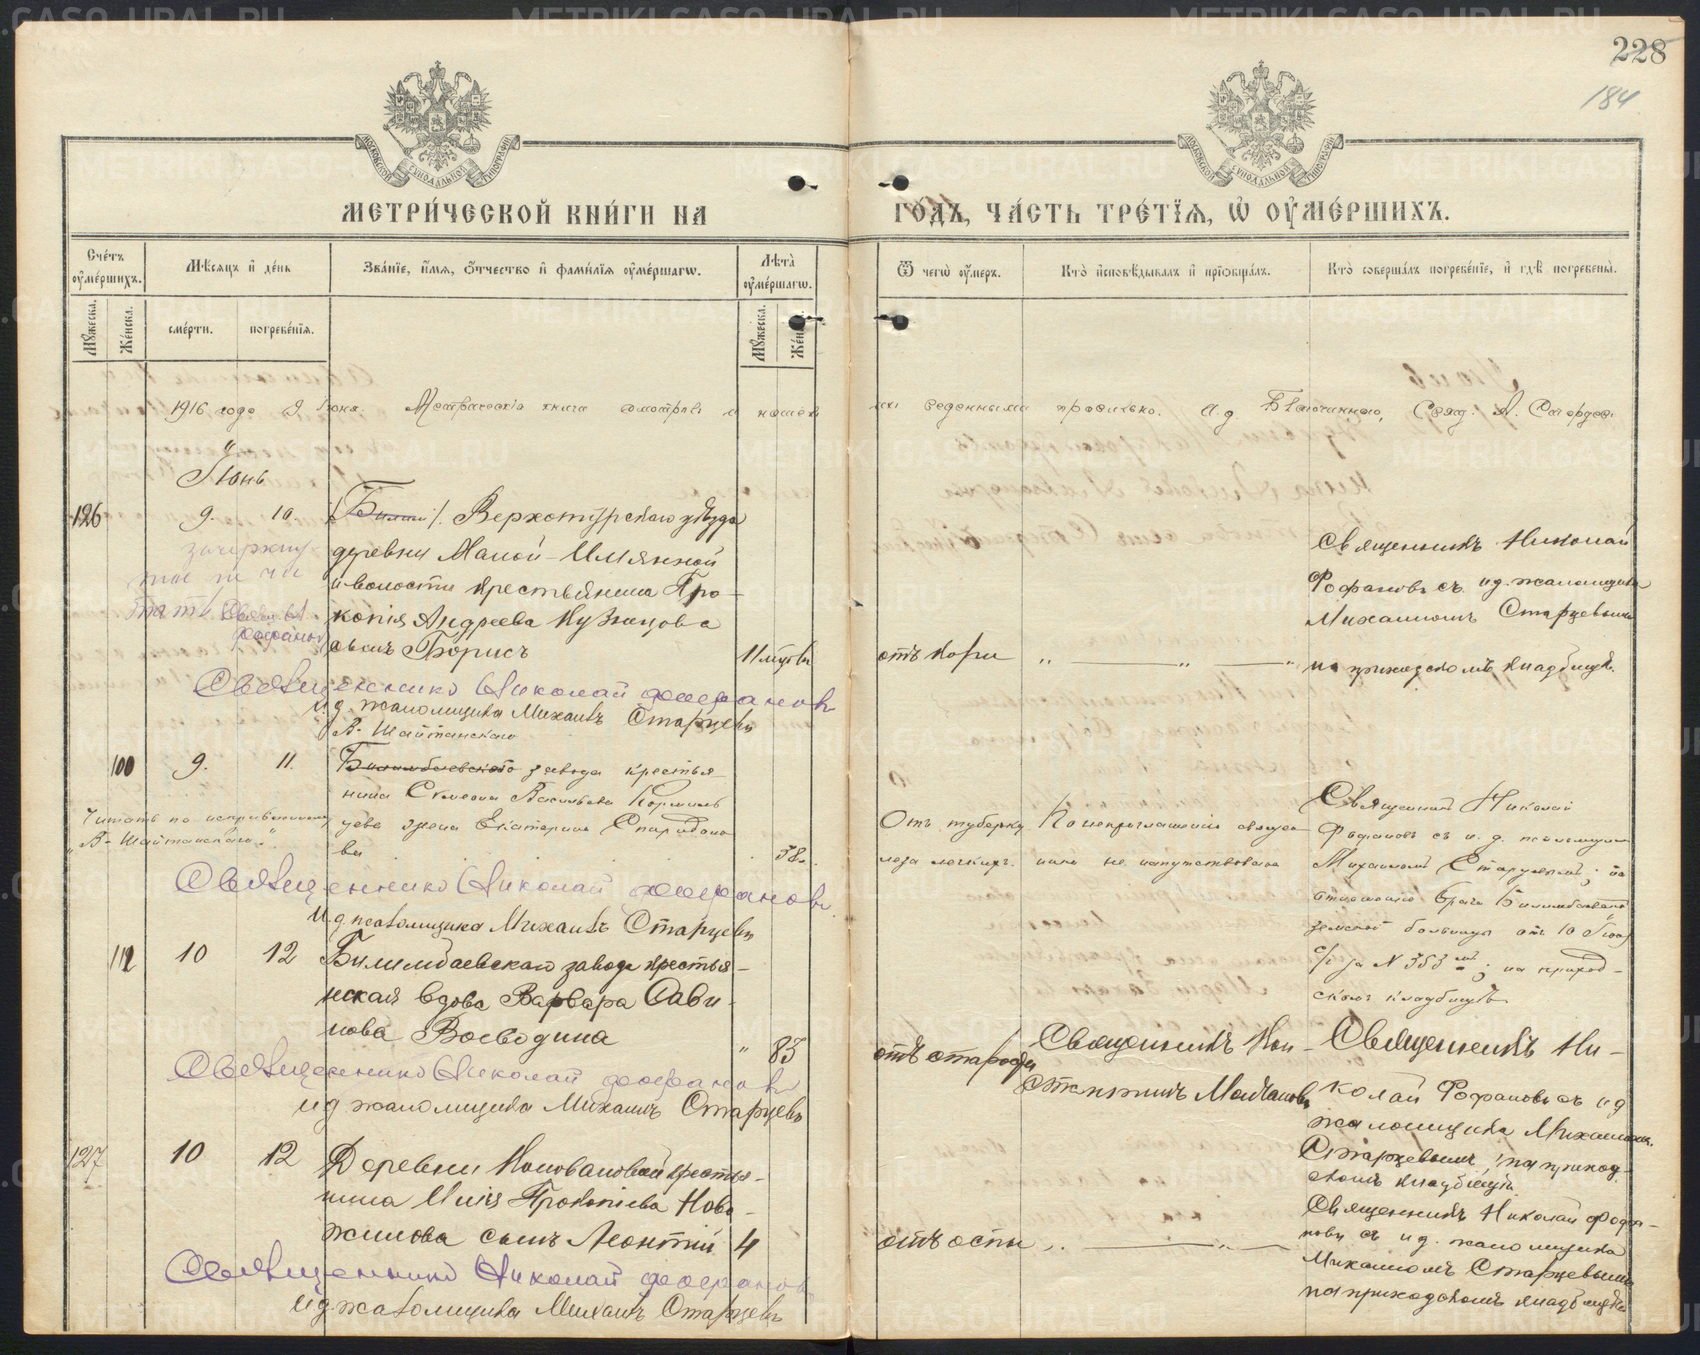 228
184
МЕТРИ́ЧЕСКОЙ КНИ́ГИ НА ГО́ДЪ, ЧА́СТЬ ТРЕ́ТЇѦ, Ѡ ОУ҆МЕ́РШИХЪ.
Сче́тъ оу҆ме́ршихъ.
Мѣ́сяцъ и҆ де́нь
Зва́нїе, и҆́мя, ѻ҆́тчество и҆ фами́лїя оу҆ме́ршагѡ.
Лѣ́та оу҆ме́ршагѡ.
Ѿ чегѡ̀ оу҆́меръ.
Кто̀ и҆сповѣ́дывалъ и҆ прїѡбща́лъ.
Кто̀ соверша́лъ погребе́нїе, и҆ гдѣ̀ погребены̀.
Мꙋ́жеска.
Же́нска.
сме́рти.
погребе́нїя.
Мꙋ́жеска.
Же́нска.
1916 года 9 Іюня. Метрическія книги смотрѣлъ и нашелъ
веденными правильно. И. д. Благочиннаго, Свящ. А.
Іюнь
126 9. 10. Верхотурскаго уѣзда
деревни Малой-Имянной
и волости крестьянина Про-
копія Андреева Кузнецова
сынъ Борисъ 11 мѣсяц
отъ кори
Священникъ Николай
Фофановъ съ и. д. псаломщика
Михаиломъ Старцевымъ
на приходскомъ кладбищѣ.
зачеркну
тое не чи
тать Священ
Фофановъ
Священникъ Николай Фофановъ
и д псаломщика Михаилъ Старцевъ
В-Шайтанскаго
100 9. 11. Билимбаевскаго завода крестья
нина Симеона Васильева Кормиль
цева жена Екатерина Спиридоно
ва 58.
Читать по исправленному
„В-Шайтанскаго“
Отъ туберку
леза легкихъ.
За неприглашеніемъ священ
ника не напутствована
Священникъ Николай
Фофановъ съ и. д. псаломщика
Михаиломъ Старцевымъ; по
отношенію врача Билимбаевской
земской больницы отъ 10 Іюня
с/г за № 353мъ; на приход-
скомъ кладбищѣ
Священникъ Николай Фофановъ
И д псаломщика Михаилъ Старцевъ
112 10 12 Билимбаевскаго завода крестья-
нская вдова Варвара Сави-
нова Воеводина " 83
отъ старости
Священникъ Кон-
стантинъ Молчановъ
Священникъ Ни-
колай Фофановъ съ и д
псаломщика Михаиломъ
Старцевымъ; на приход-
скомъ кладбищѣ
Священникъ Николай Фофановъ
и д псаломщика Михаилъ Старцевъ
127 10 12 Деревни Коноваловой крестья-
нина Иліи Прокопіева Ново-
жилова сынъ Леонтій 4
отъ оспы
Священникъ Николай Фофа-
новъ съ и д. псаломщика
Михаиломъ Старцевымъ
на приходскомъ кладбищѣ
Священникъ Николай Фофановъ
И д псаломщика Михаилъ Старцевъ